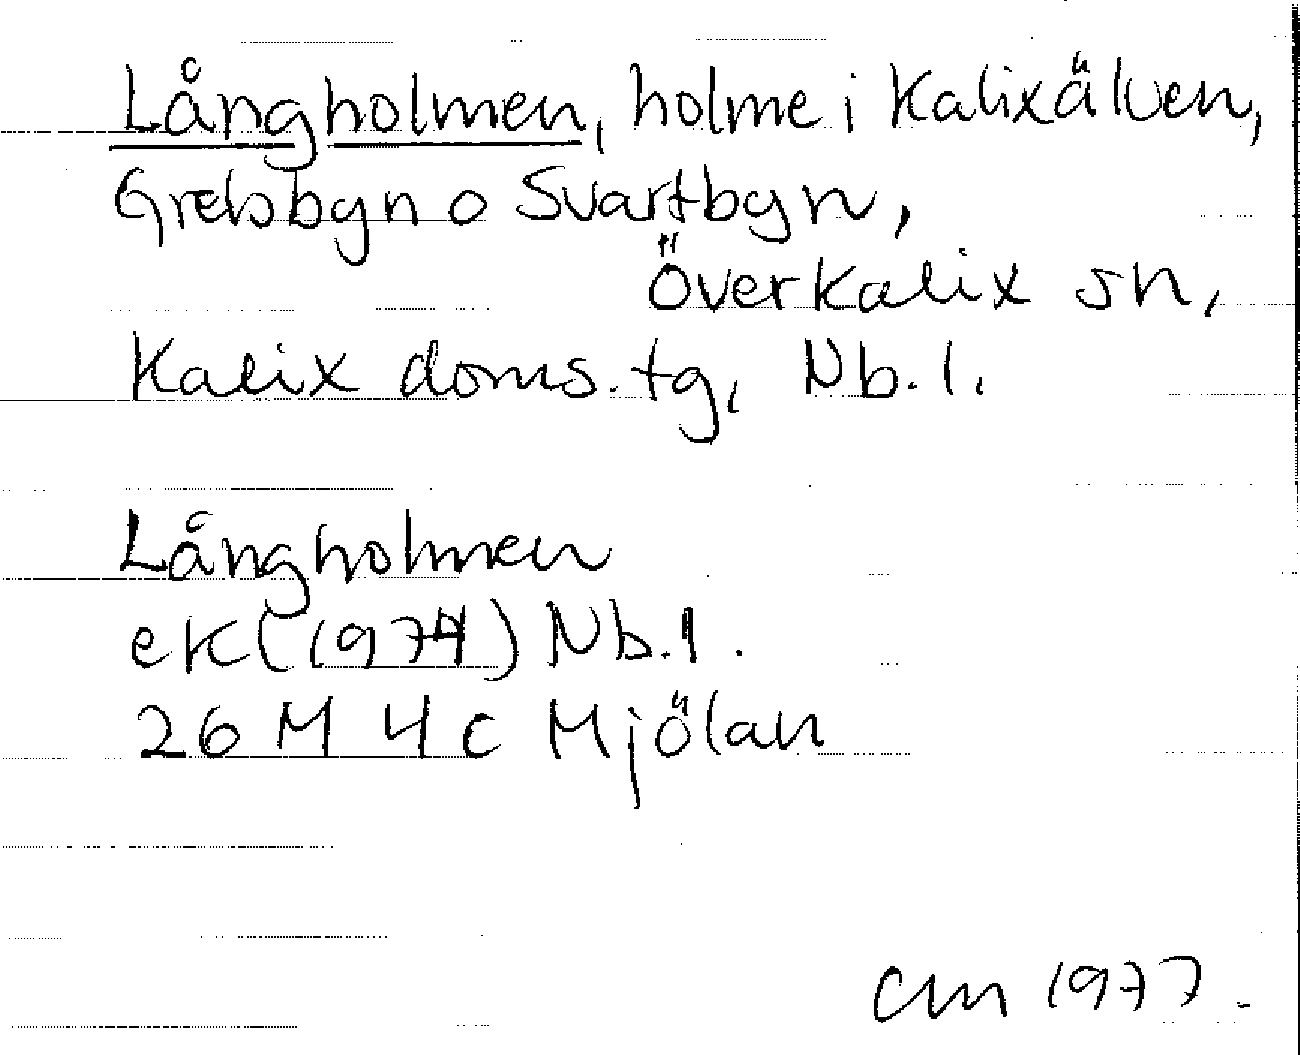 Långholmen, holme i Kalixälven,
Grelsbyn o Svartbyn,
Överkalix sn,
Kalix doms. tg, Nb. l.
Långholmen
ek (1974) Nb. l.
26 M 4c Mjölan
cm 1977.